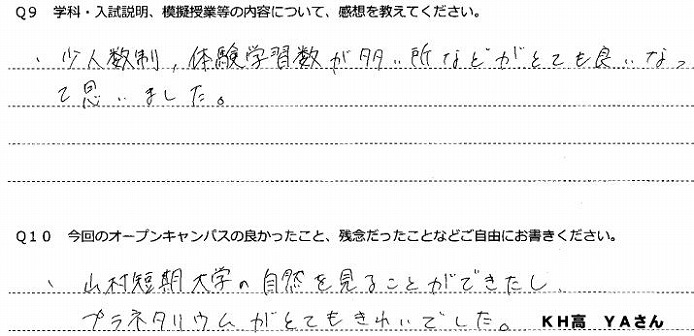 Q9 学科・入試説明、模擬授業等の内容について、感想を教えてください。
、少人数制，体験学習数が多い所などがとても良いなっ
て思いました。
Q10 今回のオープンキャンパスの良かったこと、残念だったことなどご自由にお書きください。
、山村短期大学の自然を見ることができたし、
プラネタリウムがとてもきれいでした。 KH高 YAさん